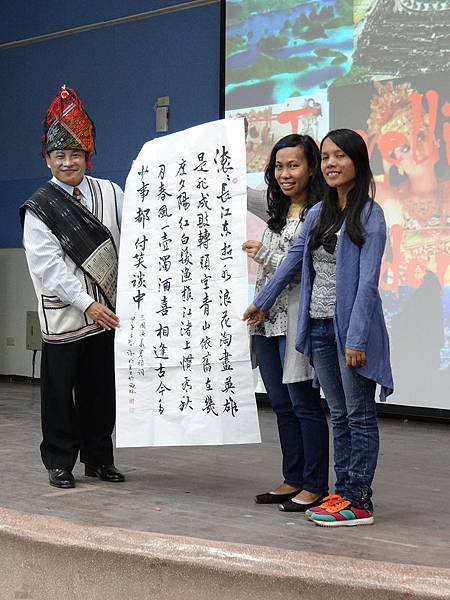 滾〻長江東逝水浪花淘盡英雄
是非成敗轉頭空青山依舊在幾
度夕陽紅白髮漁樵江渚上慣看秋
月春風一壺濁酒喜相逢古今多
少事都付笑談中
三國演義